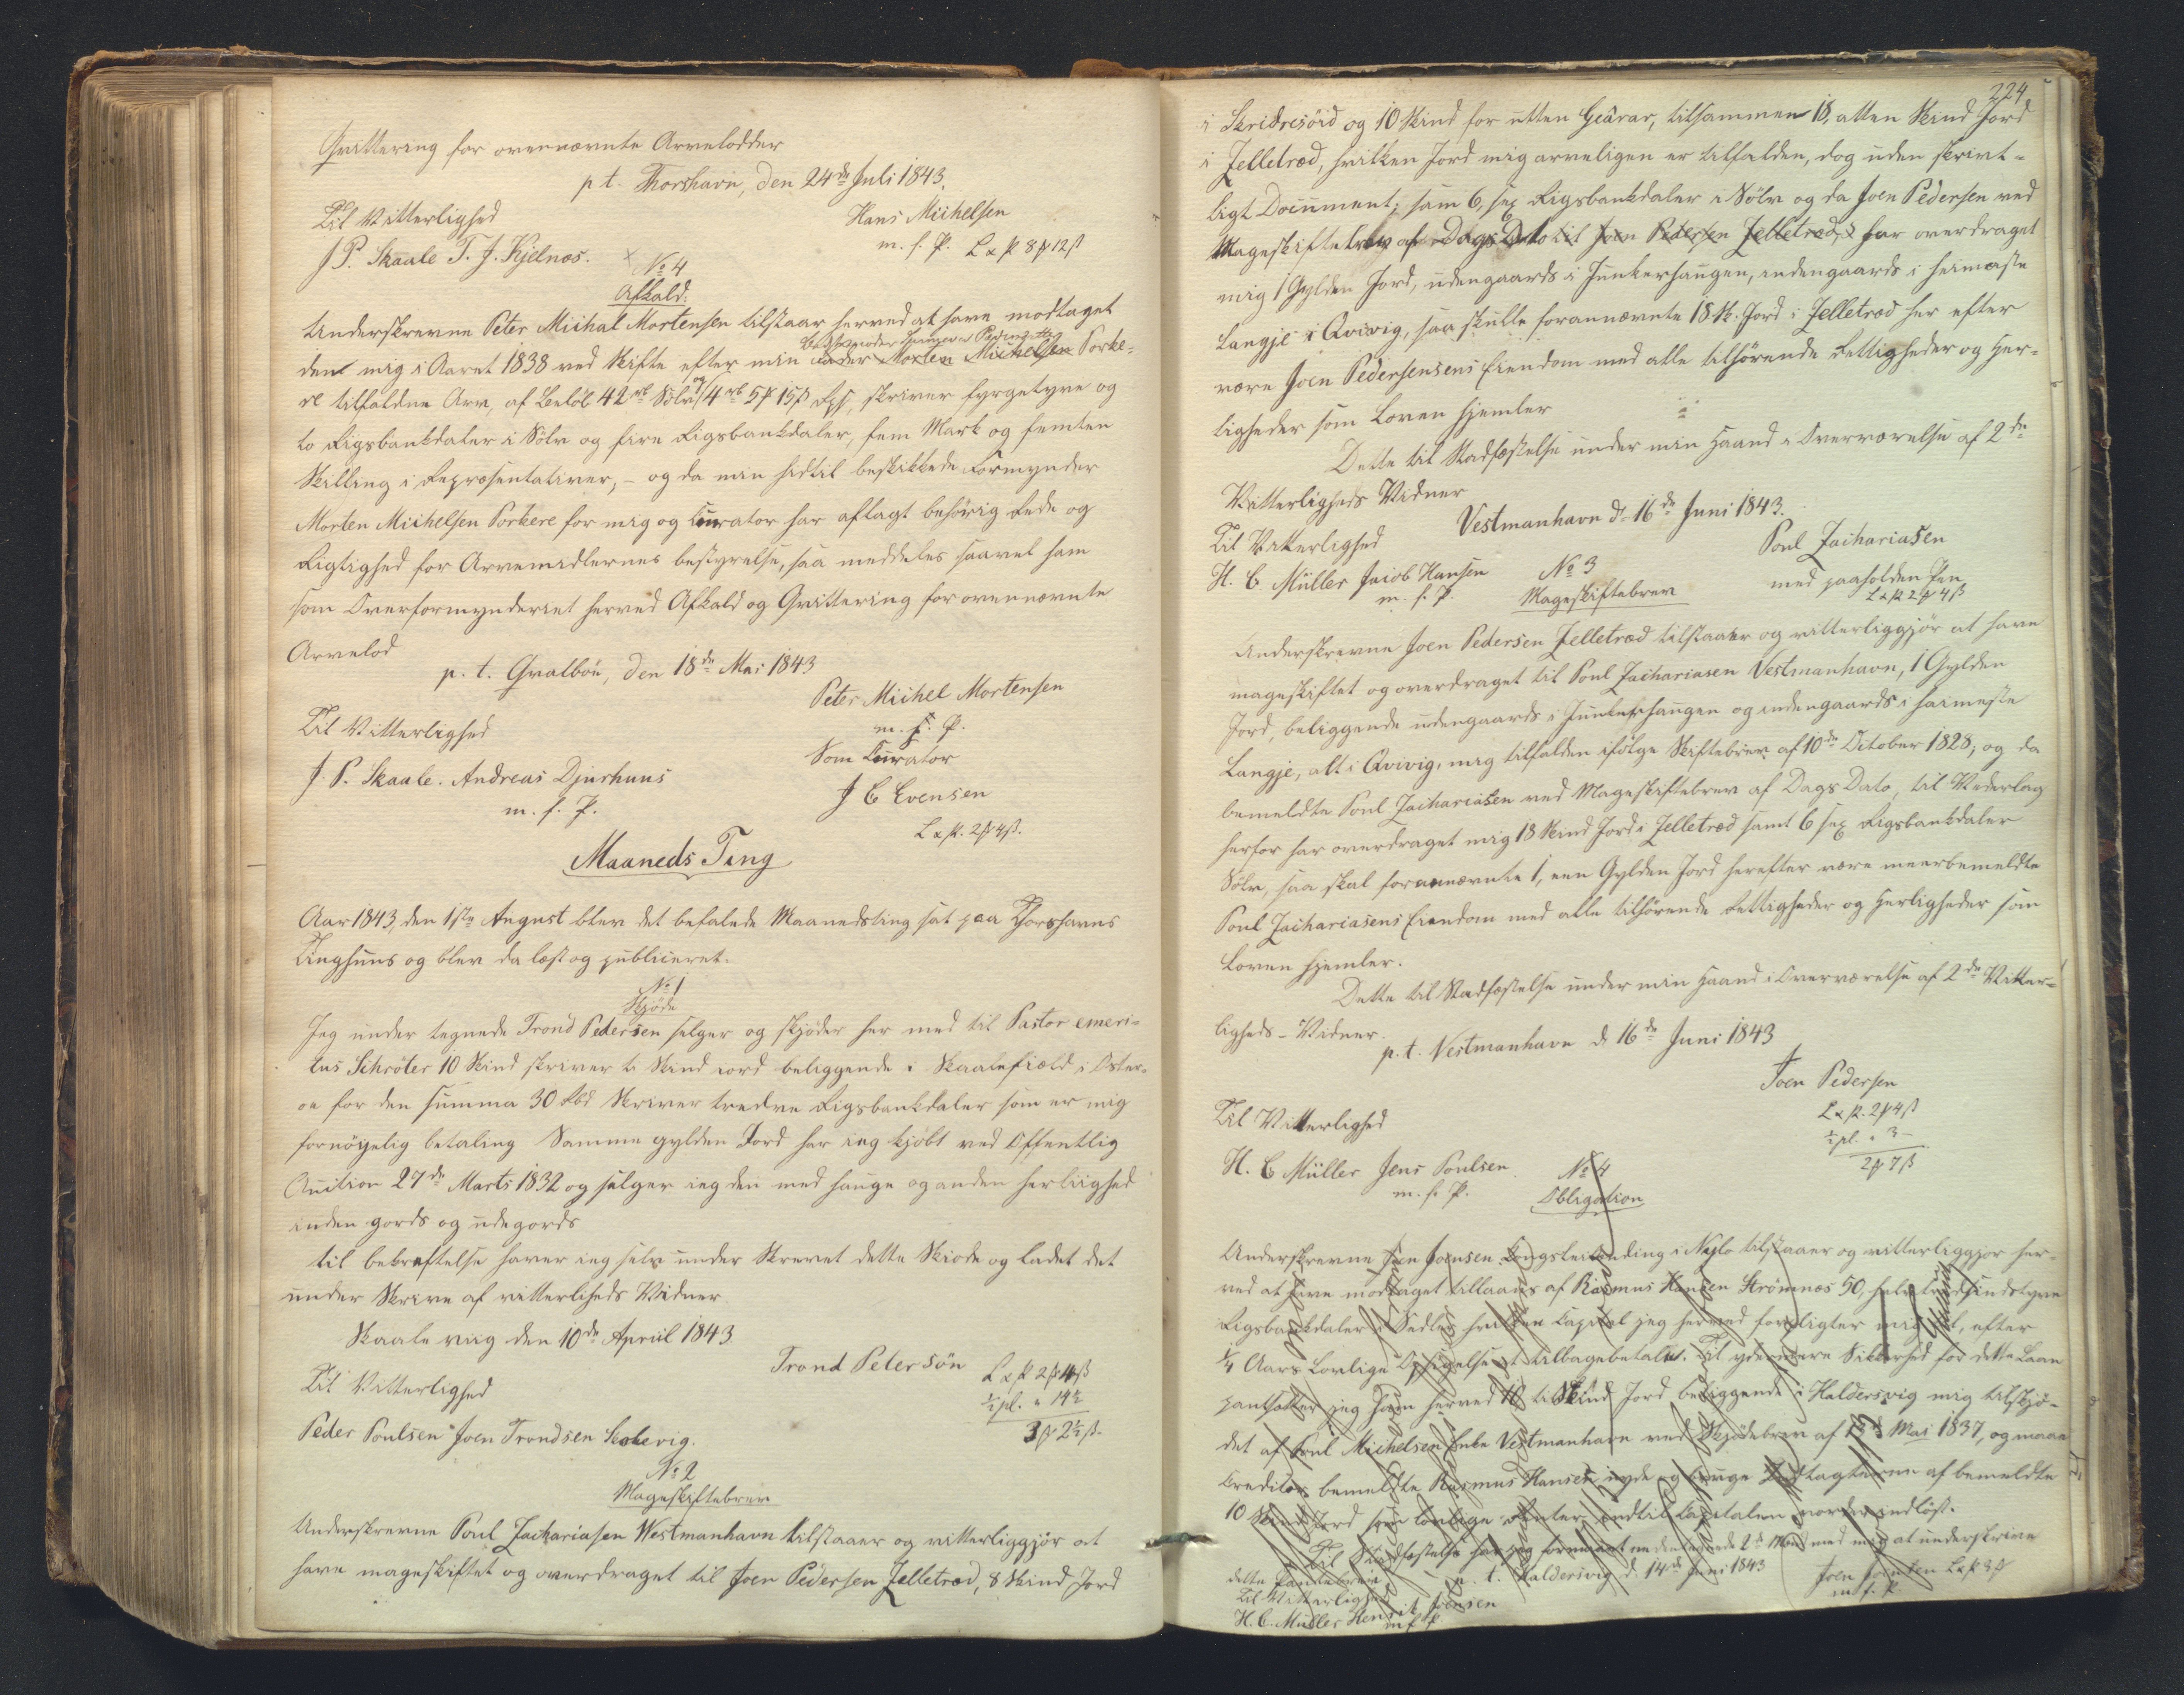 Qvittering for ovennævnte Arvelodder
p t. Thorshavn, den 24de Juli 1843.
Til Vitterlighed
Hans Michelsen
J P. Skaale T. J. Kjelnæs.
m. f. P. L x p 8 # 12 ß
No 4
Afkald.
Underskrevne Peter Michal Mortensen tilstaar herved at have modtaget
den mig i Aaret 1838 ved Skifte efter min Morten Michelsen Porke-
re tilfaldne Arv, af Beløb 42 rb Sølv og 4 rb 5 # 15 ß , skriver fyrgetyve og
to Rigsbankdaler i Sølv og fire Rigsbankdaler, fem Mark og femten
Skilling i Repræsentativer, - og da min hidtil beskikkede Formynder
Morten Michelsen Porkere for mig og Curator har aflagt behørig Rede og
Rigtighed for Arvemidlernes bestyrelse, saa meddeles saavel ham
som Overformynderiet herved Afkald og Qvittering for ovennævnte
Arvelod
p. t. Qvalbøe, den 18de Mai 1843
Peter Michel Mortensen
Til Vitterlighed
m. f. P.
Som Curator
J. P. Skaale. Andreas Djurhuus
J C Evensen
m. f. P.
L x p. 2 # 4 ß.
Maaneds Ting
Aar 1843, den 1ste August blev det befalede Maanedsting sat paa Thorshavns
Tinghuus og blev da læst og publiceret.
No 1
Skjøde
Jeg under tegnede Trond Pedersen selger og skjøder her med til Pastor emeri-
tus Schrøter 10 Skind skriver ti Skind iord beliggende i Skaalefield i Øster-
øe for den Summa 30 Rbd Skriver tredve Rigsbankdaler som er mig
fornøyelig betaling Samme gylden Jord har ieg kjøbt ved Offentlig
Auction 27de Marts 1832 og selger ieg den med hauge og anden herlighed
inden gords og udegords
til bekreftelse haver ieg selv under Skrevet dette Skiode og ladet det
under Skrive af vitterliheds Vidner
Skaale viig den 10de Apriil 1843
Trond Petersøn
L x p 2 # 4 ß
Til Vitterlighed
½ pl. " 14½
Peder Poulsen Joen Trondsen Skalevig.
3 # 2½ ß.
No 2
Mageskiftebrev
Underskrevne Poul Zachariasen Westmanhavn tilstaaer og vitterliggjør at
have mageskiftet og overdraget til Joen Pedersen Zelletræd, 8 Skind Jord
224
i Skridresøid og 10 Skind for utten Geärar, tilsammen 18, atten Skind Jord
i Zelletræd, hvilken Jord mig arveligen er tilfalden, dog uden skrivt-
ligt Document; sam 6, sex Rigsbankdaler i Sølv og da Joen Pedersen ved
Mageskiftebrev af Dags Dato til Joen Pedersen Zelletræd, har overdraget
mig 1 Gylden Jord, udengaards i Junkerhaugen, indengaards i heimaste
Langje i Qvivig, saa skulle forannævnte 18 Sk. Jord i Zelletræd her efter
være Joen Pedersensens Eiendom med alle tilhørende Rettigheder og Her-
ligheder som Loven hjemler
Dette til Stadfæstelse under min Haand i Overværelse af 2de
Vitterligheds Vidner
Vestmanhavn d. 16de Juni 1843.
Til Vitterlighed
Poul Zachariasen
H. C. Müller Jacob Hansen
med paaholden Pen
m. f. P.
L x p 2 # 4 ß
No 3
Mageskiftebrev
Underskrevne Joen Pedersen Zelletræd tilstaaer og vitterliggjør at have
mageskiftet og overdraget til Poul Zachariasen Vestmanhavn, 1 Gylden
Jord, beliggende udengaards i Junkerhaugen og indengaards i heimeste
Langje, alt i Qvivig, mig tilfalden ifølge Skiftebrev af 10de October 1828; og da
bemeldte Poul Zachariasen ved Mageskiftebrev af Dags Dato, til Vederlag
herfor har overdraget mig 18 Skind Jord i Zelletræd samt 6 sex Rigsbankdaler
Sølv, saa skal forannævnte 1, een Gylden Jord herefter være meerbemeldte
Poul Zachariasens Eiendom med alle tilhørende Rettigheder og Herligheder som
Loven hjemler.
Dette til Stadfæstelse under min Haand i Overværelse af 2de Vitter-
ligheds-Vidner.
p. t. Vestmanhavn d. 16de Juni 1843
Joen Pedersen
Til Vitterlighed
L x p. 2 # 4 ß
½ pl. " 3 -
H. C Müller Jens Poulsen
2 # 7 ß
m. f. P.
No 4
Obligation
Underskrevne Joen Joensen i tilstaaer og vitterliggjør her-
ved at have modtaget tillaans af Rasmus Hansen Strømnæs 50, halvtredsindstyve
Rigsbankdaler i Sedler hvilken Capital jeg herved forpligter mig til, efter
¼ Aars Lovlige Opsigelse at tilbagebetale. Til ydermere Sikkerhed for dette Laan
pantsætter jeg ham herved 10 ti Skind Jord beliggende i Haldersvig mig tilskjø-
det af Poul Michelsen Enke Vestmanhavn ved Skjødebrev af Mai 1837, og maa
Creditor bemeldte Rasmus Hansen nyde og bruge Indtægterne af bemeldte
10 Skind Jord som lovlige Renter, indtil Capitalen vorder indløst.
Til Stadfæstelse har jeg formaaet 2de Mænd med mig at underskrive
dette Pantebrev
p. t. Haldersvig d. 14de Juni 1843
Joen Joensen L x p 3 #
Til Vitterlighed
m. f. P.
H. C. Müller Henrik Joensen
m f P